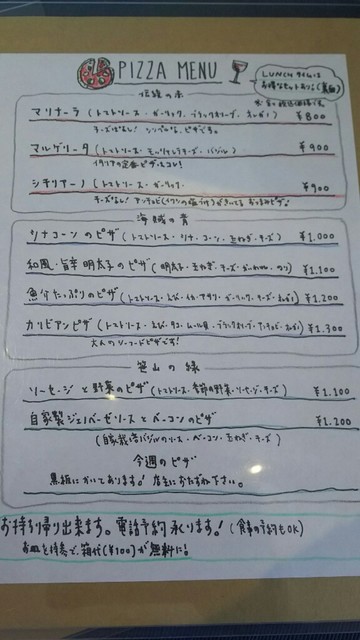 PIZZA MENU
LUNCHタイムは
お得なセットあり(裏面)
の赤
マリナーラ (トマトソース・ガーリック、ブラックオリーブ、オレガノ) ¥800
チーズなし! シンプルな、ピザです。
マルゲリータ (トマトソース・モッツァレラチーズ・バジル) ¥900
イタリアの定番ピザといえばコレ!
シチリアーノ (トマトソース・ガーリック・ ¥900
チーズなし! アンチョビ(イワシの塩づけ)がきいてる おつまみピザ!
海賊の青
ツナコーンのピザ (トマトソース・ツナ・コーン・玉ねぎ・チーズ) ¥1.000
和風・旨辛 明太子のピザ (明太子・玉ねぎ・チーズ・のり) ¥1.100
魚介たっぷりのピザ (トマトソース・えび・イカ・アサリ・ガーリック・チーズ・オレガノ) ¥1.200
カリビアンピザ (トマトソース・えび・タコ・ムール貝・ブラックオリーブ・アンチョビ・オレガノ) ¥1.300
大人のシーフードピザです!
笹山の緑
ソーセージと野菜のピザ (トマトソース・季節の野菜・ソーセージ・チーズ) ¥1.100
自家製ジェノベーゼソースとベーコンのピザ ¥1.200
(自家栽培バジルのソース・ベーコン・玉ねぎ・チーズ)
今週のピザ
黒板にかいてあります! 店主におたずね下さい。
お持ち帰り出来ます。電話予約承ります! (食事の予約もOK)
お皿を持参で、箱代(¥100)が無料に!